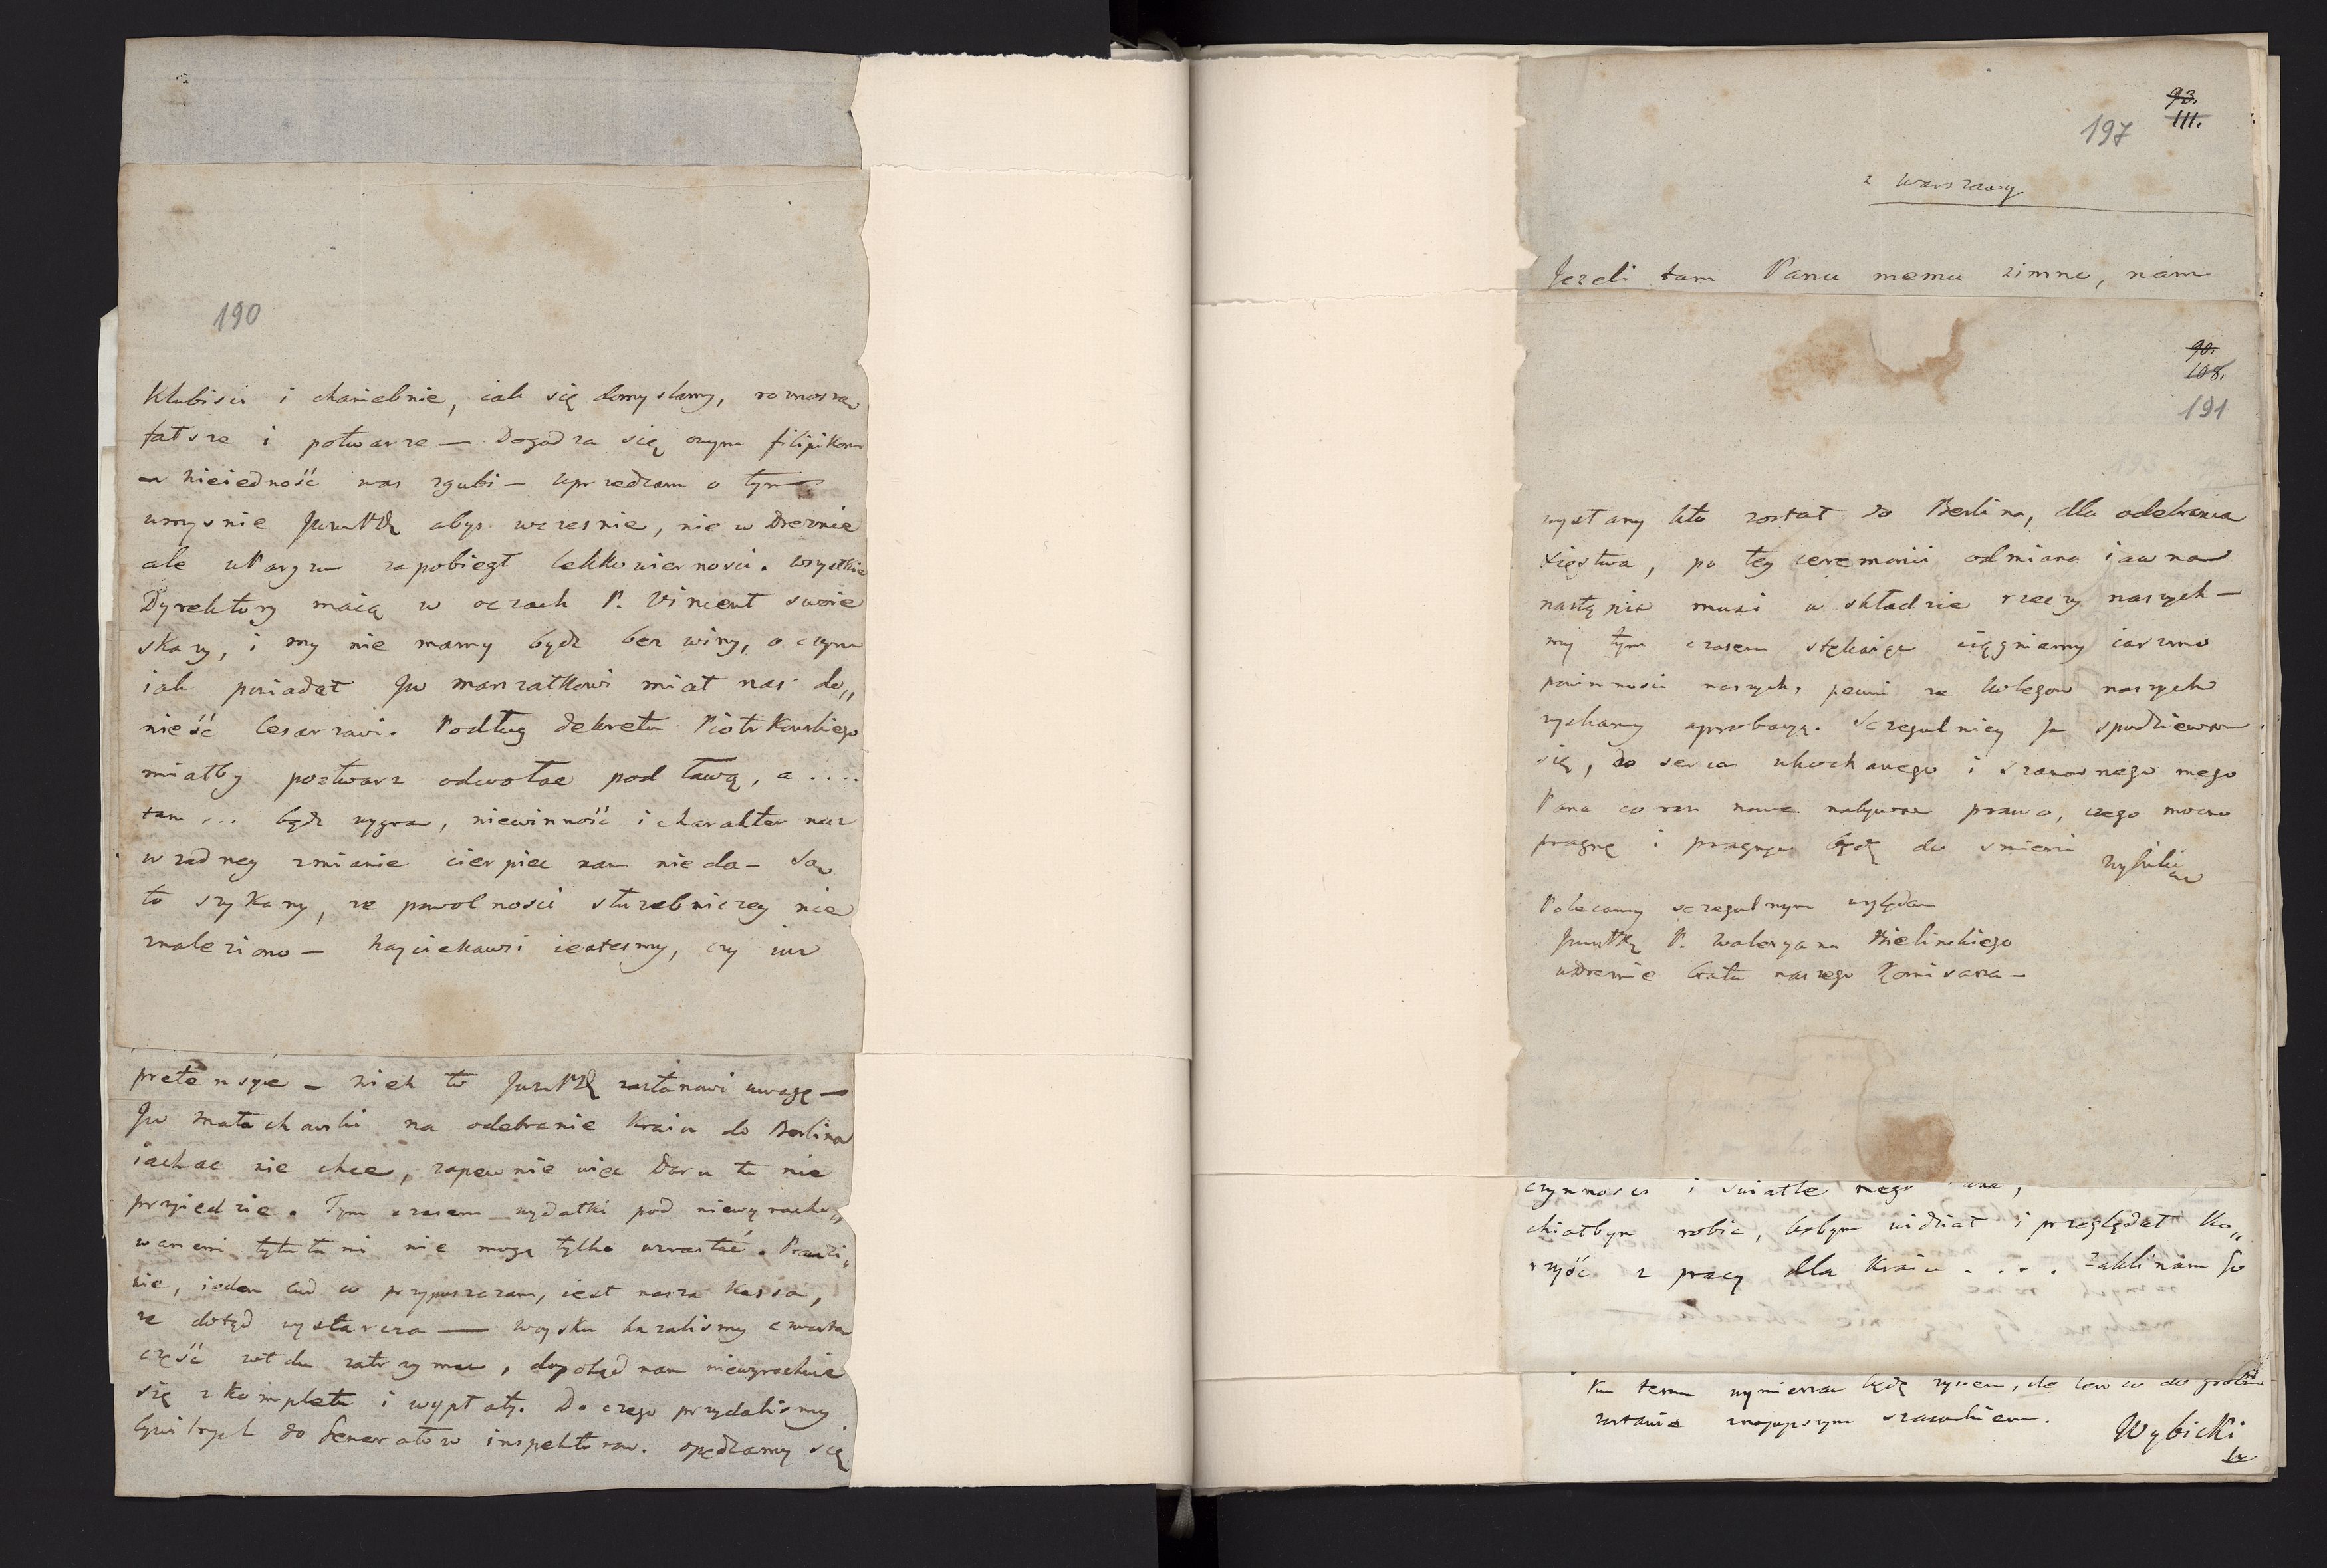 190
Klubisci i chaniebnie, iak się domyslamy, roznoszą
fatsze i potwarze — Dogadza się onym filipikom
— nieiedność nas zgubi — uprzedzam o tym
umyśnie JWWPD abyś wczesnie, nie w Dreznie
ale w Paryżu zapobiegł lekkowierności. wszystkie
Dyrektory maią w oczach P. Vincent swoie
skazy, i my nie mamy bydź bez winy, o czym
iak powiadał JW Marszałkowi miał nas do„
nieść Cesarzowi. Podług dekretu Piotrkowskiego
miałby poztwarz odwołac pod ławą, a ....
tam ... bądź wygra, niewinność i charakter nasz
w żadney zmianie cierpiec nam nie da — Są
to szykany, że powolności służebniczey nie
znaleziono — Nayciekawsi iestesmy, czy iuż
pretensye — niech to JWWPD zastanowi uwagę —
JW Małachowski na odebranie kraiu do Berlina
iachac nie chce, zapewnie więc Daru tu nie
przyiedzie. Tym czasem wydatki pod niewyracho„
wanemi tytułami nie mogą tylko wzrastać. Prawdzi„
wie, ieden cud w przypuszczam, iest nasza kassa,
że dotąd wystarcza — woysku kazalismy czwartą
część żołdu zatrzymac, dopokąd nam niewyrachuie
się z kompletu i wypłaty. Do czego przydalismy
Cywilnych do Generałow inspektorow. opędzamy się
93.
111.
197
z Warszawy
Jezeli tam Panu memu zimno, nam
90.
108.
191
wysłany kto został do Berlina, dla odebrania
Xięstwa, po tey ceremonii odmiana iawna
nastąpić musi w składzie rzeczy naszych —
my tym czasem stękaiąc ciągniemy iarzmo
powinności naszych, pewni że kolegow naszych
zyskamy aprobacyą. Szczegulniey ja spodziewam
się, do serca ukochanego i szanownego mego
Pana coraz nowe nabywac prawo, czego mocno
pragnę i pragnąc będę do smierci Wybicki
Polecamy szczegulnym względom
JWWPD P. Waleryana Bielinskiego
w Dreznie brata naszego Komisarza —
czynności i swiatle mego Pana,
chciałbym robic, bobym widział i przeglądał ko„
rzyść z pracy dla kraiu . . . . zaklinam Go
Ku temu wymierzac będę życiem, ile sew w do grobu
zostanie znayzywszym szacunkiem.
Wybicki